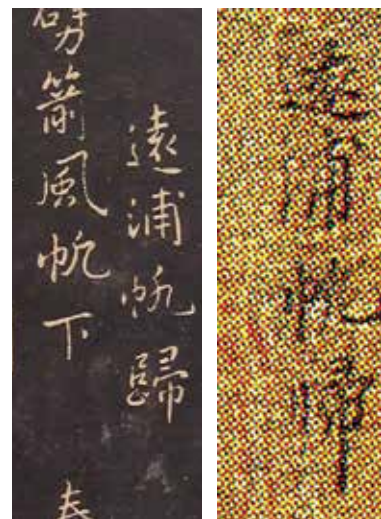 遠浦帆歸
箭風帆下
遠浦帆帰